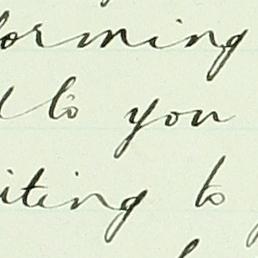 orming
to you
iting to